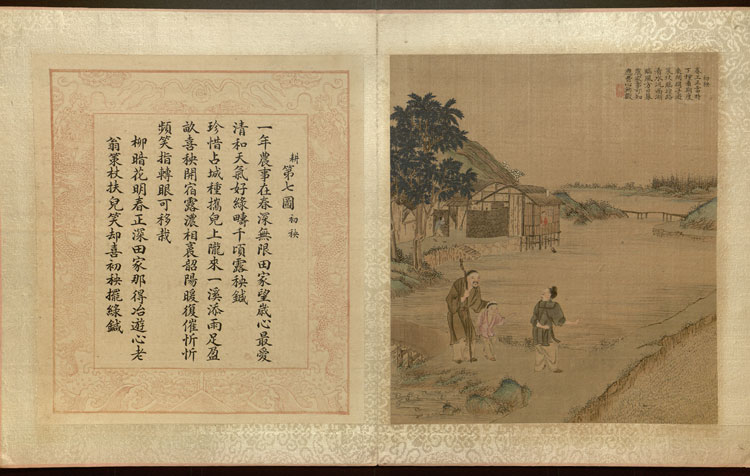 初秧
耕
第七圖 初秧
一年農事在春深無限田家望歲心最愛
清和天氣好綠疇千頃露秧鍼
珍惜占城種攜兒上隴來一溪添雨足盈
畝喜秧開宿露濃相裛韶陽暖復催忻忻
頻笑指轉眼可移栽
柳暗花明春正深田家那得冶遊心老
翁策杖扶兒笑却喜初秧擺綠鍼